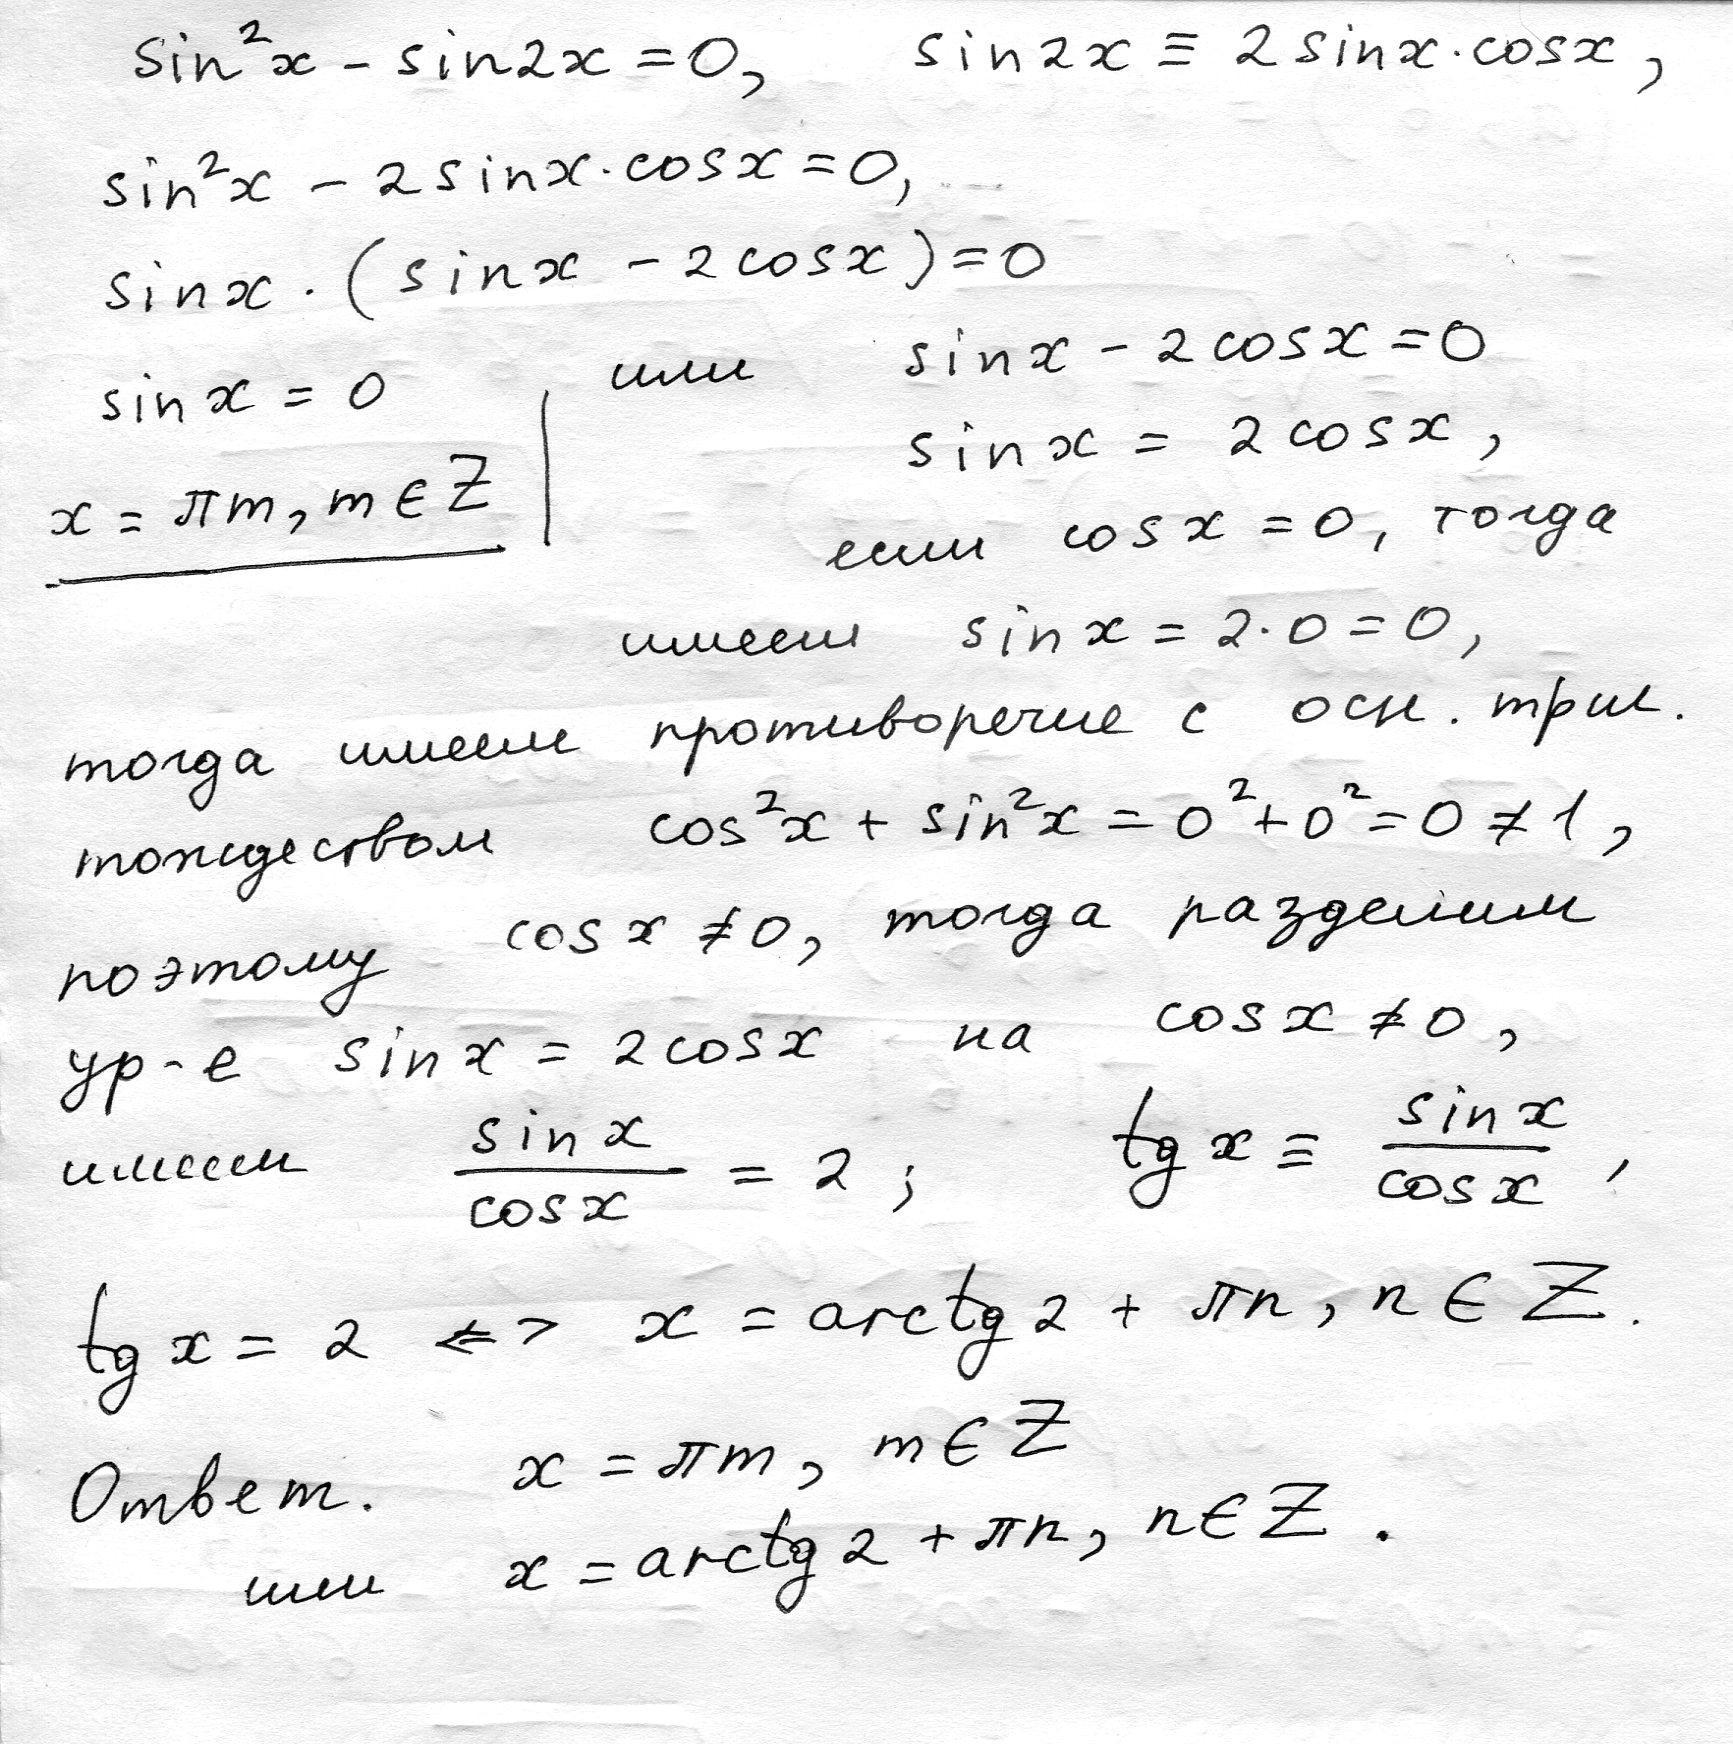 sin²x - sin2x = 0, sin2x ≡ 2sinx·cosx,
sin²x - 2sinx·cosx = 0,
sinx·(sinx - 2cosx) = 0
sinx = 0 | или sinx - 2cosx = 0
x = πm, m∈Z
sinx = 2cosx,
если cosx = 0, тогда
имеем sinx = 2·0 = 0,
тогда имеем противоречие с осн. триг.
тождеством cos²x + sin²x = 0² + 0² = 0 ≠ 1,
поэтому cosx ≠ 0, тогда разделим
ур-е sinx = 2cosx на cosx ≠ 0,
имеем sinx/cosx = 2; tgx ≡ sinx/cosx,
tgx = 2 <=> x = arctg2 + πn, n∈Z.
Ответ. x = πm, m∈Z
или x = arctg2 + πn, n∈Z.